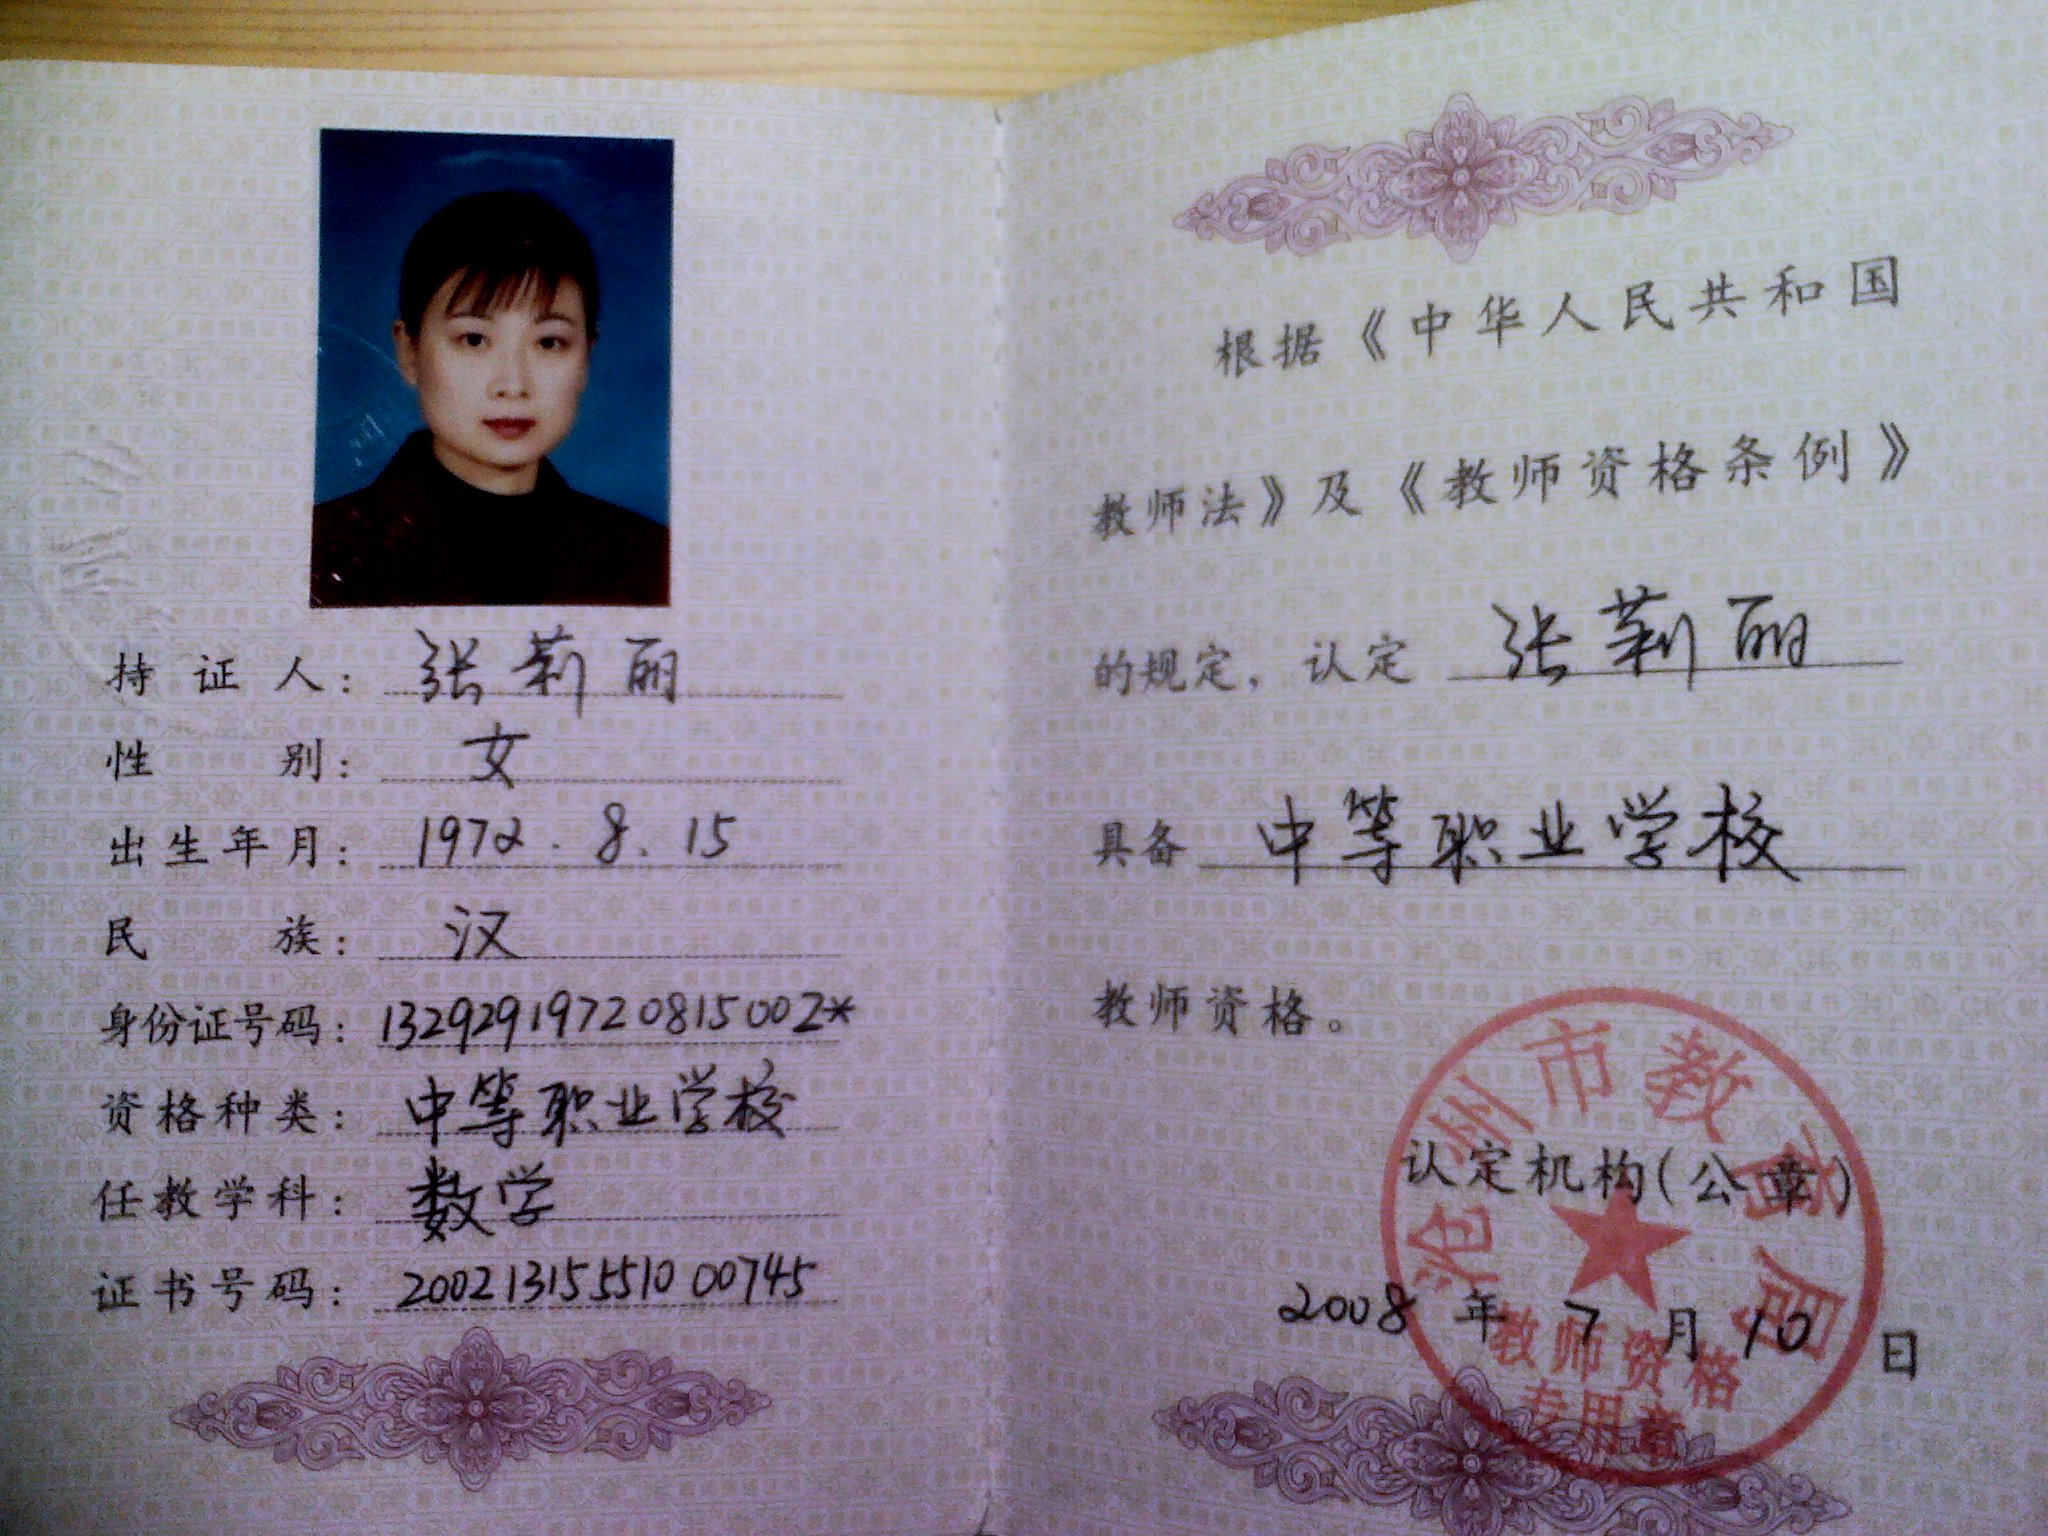 持证人：张莉丽
性别：女
出生年月：1972.8.15
民族：汉
身份证号码：13292919720815002*
资格种类：中等职业学校
任教学科：数学
证书号码：20021315551000745
根据《中华人民共和国
教师法》及《教师资格条例》
的规定，认定 张莉丽
具备 中等职业学校
教师资格。
沧州市教育局
认定机构(公章)
2008年7月10日
教师资格
专用章